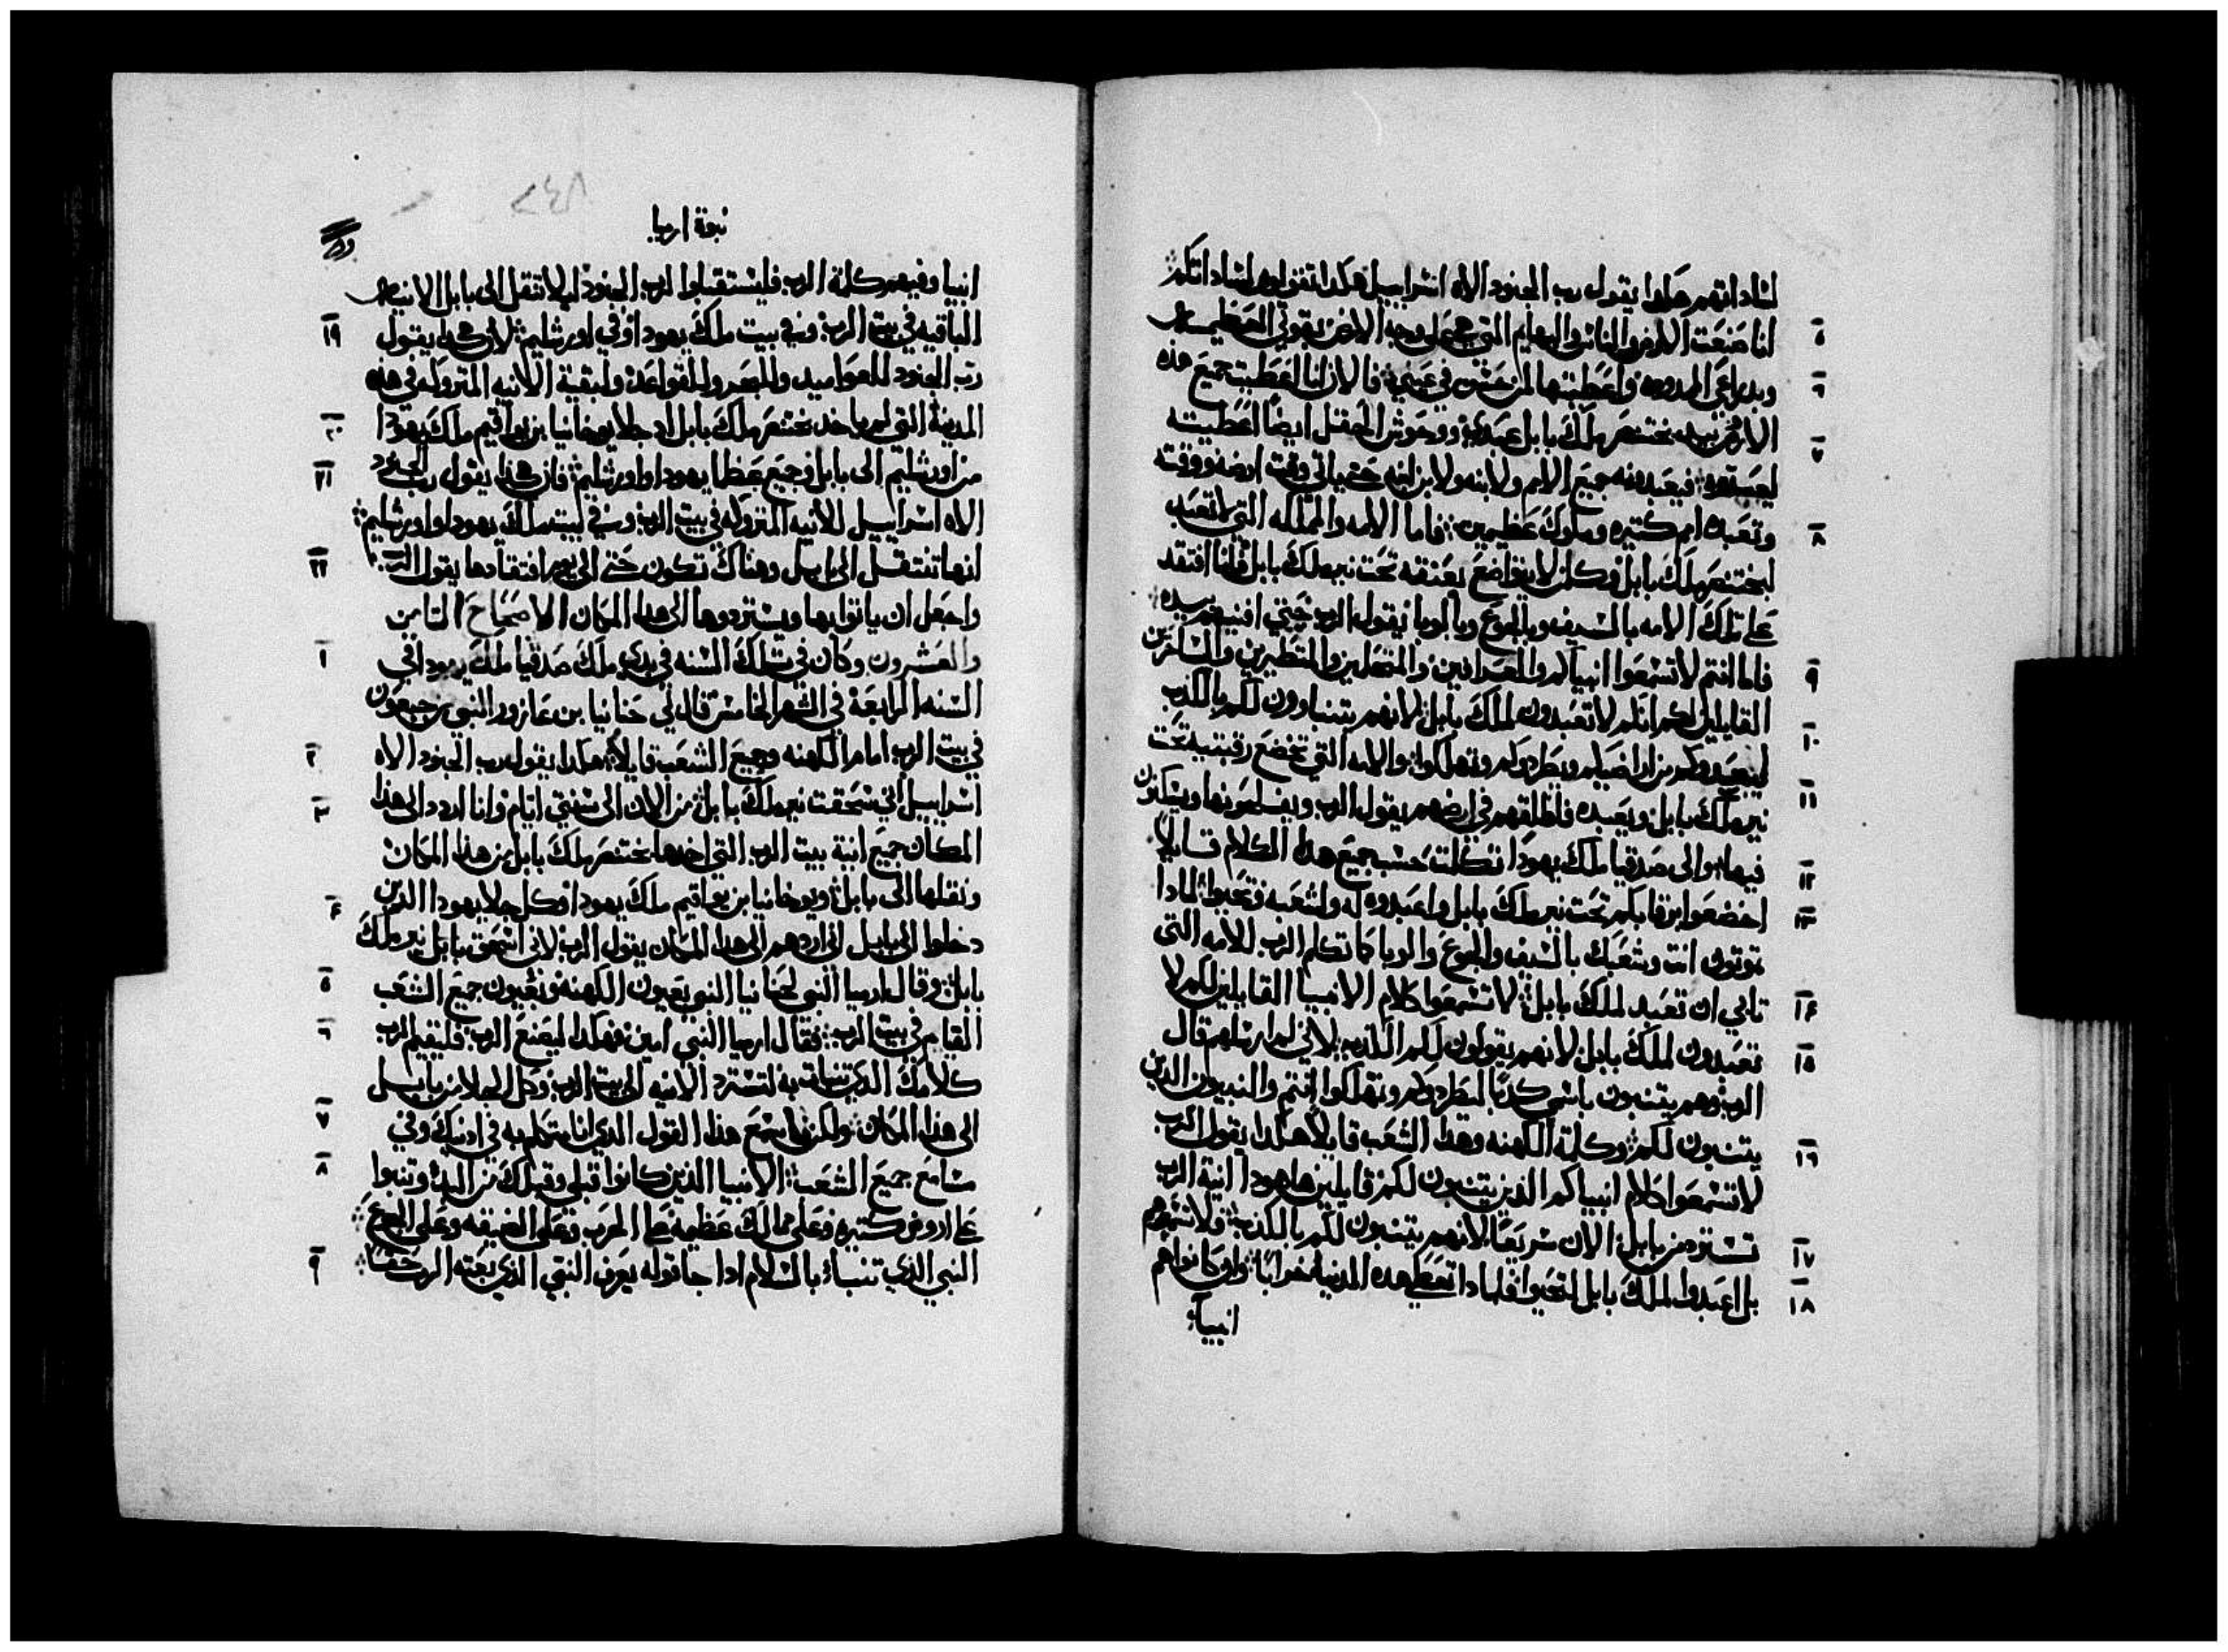 لساداتهم هكدا يقول رب الجنود الاه اسراييل هكدا تقولوا لساداتكم
٥ انا صنعت الارض والناس والبهايم التي هي على وجه الارض بقوتي العظيمه
٦ وبدراعي الممدوده واعطيتها لمن حسن في عيني فالان انا اعطيت جميع هذه
الارض بيد بختنصر ملك بابل عبدي ووحوش الحقل ايضا اعطيته
٧ ليعبدوه فيعبدونه جميع الامم ولابنه ولابن ابنه حتي ياتي وقت ارضه ووقته
٨ وتعبده امم كتيره وملوك عظيمين فاما الامه والمملكه التي لا تعبد
لبختنصر ملك بابل وكلمن لا يتواضع بعنقه تحت نير ملك بابل فانا افتقد
علي تلك الامه بالسيف وبالجوع وبالوبا يقول الرب حتي افنيهم بيده
٩ فاما انتم لا تسمعوا انبياكم والعرافين والمتحلمين والمتطيرين والساحرين
القايلين لكم انكم لا تعبدون لملك بابل لانهم يتنباوون لكم بالكذب
١٠ ليبعدوكم من اراضيكم ويطردوكم وتهلكوا والامه التي تخضع رقبتها تحت
١١ نير ملك بابل وتعبده فاطلقهم في ارضهم يقول الرب ويفلحونها ويسكنون
١٢ فيها والى صدقيا ملك يهودا تكلمت حسب جميع هدا الكلام قايلا
١٣ اخضعوا برقابكم تحت نير ملك بابل واعبدوه له ولشعبه فتحيوا لمادا
تموتون انت وشعبك بالسيف والجوع والوبا كما تكلم الرب للامه التي
١٤ تابي ان تعبد لملك بابل لا تسمعوا كلام الانبيا القايلين لكم لا
١٥ تعبدون لملك بابل لانهم يقولون لكم الكدب لاني لم ارسلهم قال
الرب وهم يتنبون باسمي كدبا ليطردوكم وتهلكوا انتم والنبيون الدين
١٦ يتنبون لكم وكلمة الكهنه وهدا الشعب قايلا هكدا يقول الرب
لا تسمعوا كلام انبياكم الذين يتنبون لكم قايلين هاهودا انية الرب
١٧ تسترد من بابل الان سريعا لانهم يتنبون لكم بالكذب فلا تسمعوهم
١٨ بل اعبدوا لملك بابل لتحيوا فلمادا تعطي هده المدينه خرابا وان كانوا هم
انبيا
نبوة ارميا
انبيا وفيهم كلمة الرب فليستقبلوا لرب الجنود ليلا تنتقل الى بابل الانيه
١٩ الباقيه في بيت الرب وفي بيت ملك يهودا وفي اورشليم لان هكدا يقول
رب الجنود للعواميد وللبحر وللقواعد ولبقية الانيه المتروكه في هذه
٢٠ المدينه التي لم ياخد بختنصر ملك بابل اد جلا يوخانيا بن يواقيم ملك يهودا
٢١ من اورشليم الى بابل وجميع عظما يهودا واورشليم فان هكدا يقول رب الجنود
الاه اسراييل للانيه المتروكه في بيت الرب وفي بيت ملك يهودا واورشليم
٢٢ انها تنتقل الى بابل وهناك تكون حتي الى يوم افتقادها يقول الرب
واجعل ان ياتوا بها ويستردوها الى هدا المكان الاصحاح التامن
١ والعشرون وكان في تلك السنه في بدي ملك صدقيا ملك يهودا في
السنه الرابعه في الشهر الخامس قال لي حنانيا بن عازور النبي من جبعون
٢ في بيت الرب امام الكهنه وجميع الشعب قايلا هكدا يقول رب الجنود الاه
٣ اسراييل اني سحقت نير ملك بابل من الان الى سنتي ايام وانا اردد الى هذا
المكان جميع انية بيت الرب التي اخدها بختنصر ملك بابل من هذا المكان
٤ ونقلها الى بابل ويوخانيا بن يواقيم ملك يهودا وكل جلا يهودا الذين
دخلوا الى بابل انا اردهم الى هدا المكان يقول الرب لاني اسحق نير ملك
٥ بابل وقال ارميا النبي لحنانيا النبي بعيون الكهنه وبعيون جميع الشعب
٦ القيام في بيت الرب فقال ارميا النبي امين هكدا ليصنع الرب فليقيم الرب
كلامك الدي تنبات به لتسترد الانيه الى بيت الرب وكل الجلا من بابل
٧ الى هدا المكان ولكن اسمع هذا القول الدي انا متكلم به في ادنيك وفي
٨ مسامع جميع الشعب الانبيا الذين كانوا قبلي وقبلك من البدء وتنبوا
علي اروض كتيره وعلى ممالك عظيمه علي الحرب وعلى الضيقه وعلى الجوع
٩ النبي الدي تنباء بالسلام ادا جا قوله يعرف النبي الدي بعته الرب حقا